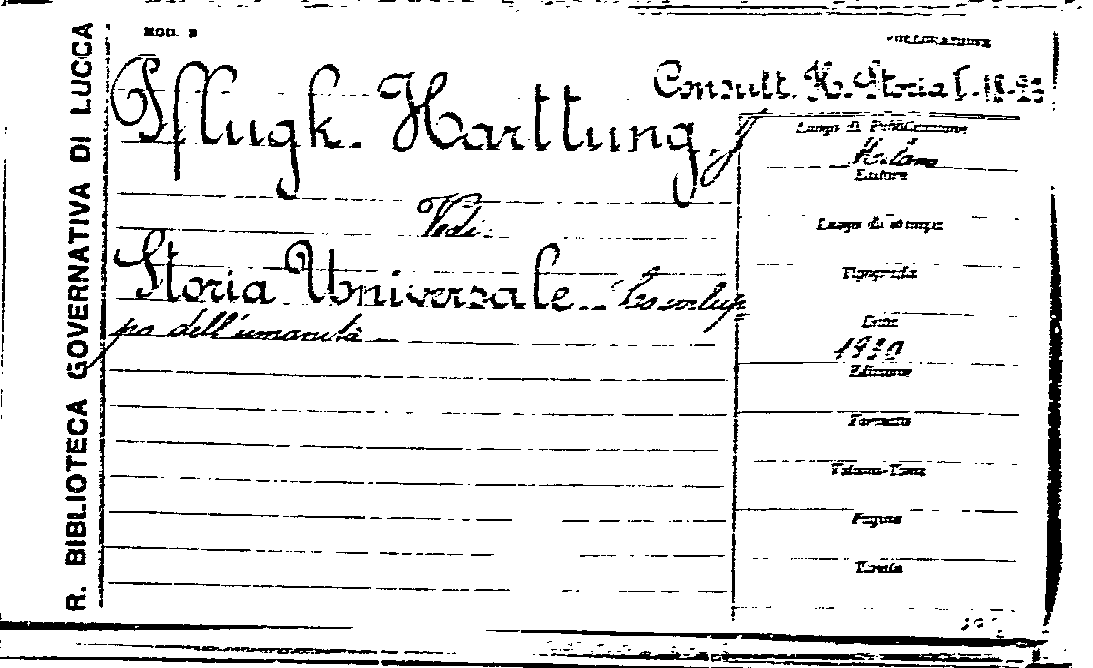 R. BIBLIOTECA GOVERNATIVA DI LUCCA
MOD. B
COLLOCAZIONE
Consult. H. Storia I.
Pflugk. Harttung. J
Vedi
Storia Universale. Lo svilup=
po dell'umanità
Luogo di Pubblicazione
Milano
Editore
Luogo di stampa
Tipografia
Data
1930
Edizione
Formato
Volume-Tomo
Pagine
Tavole